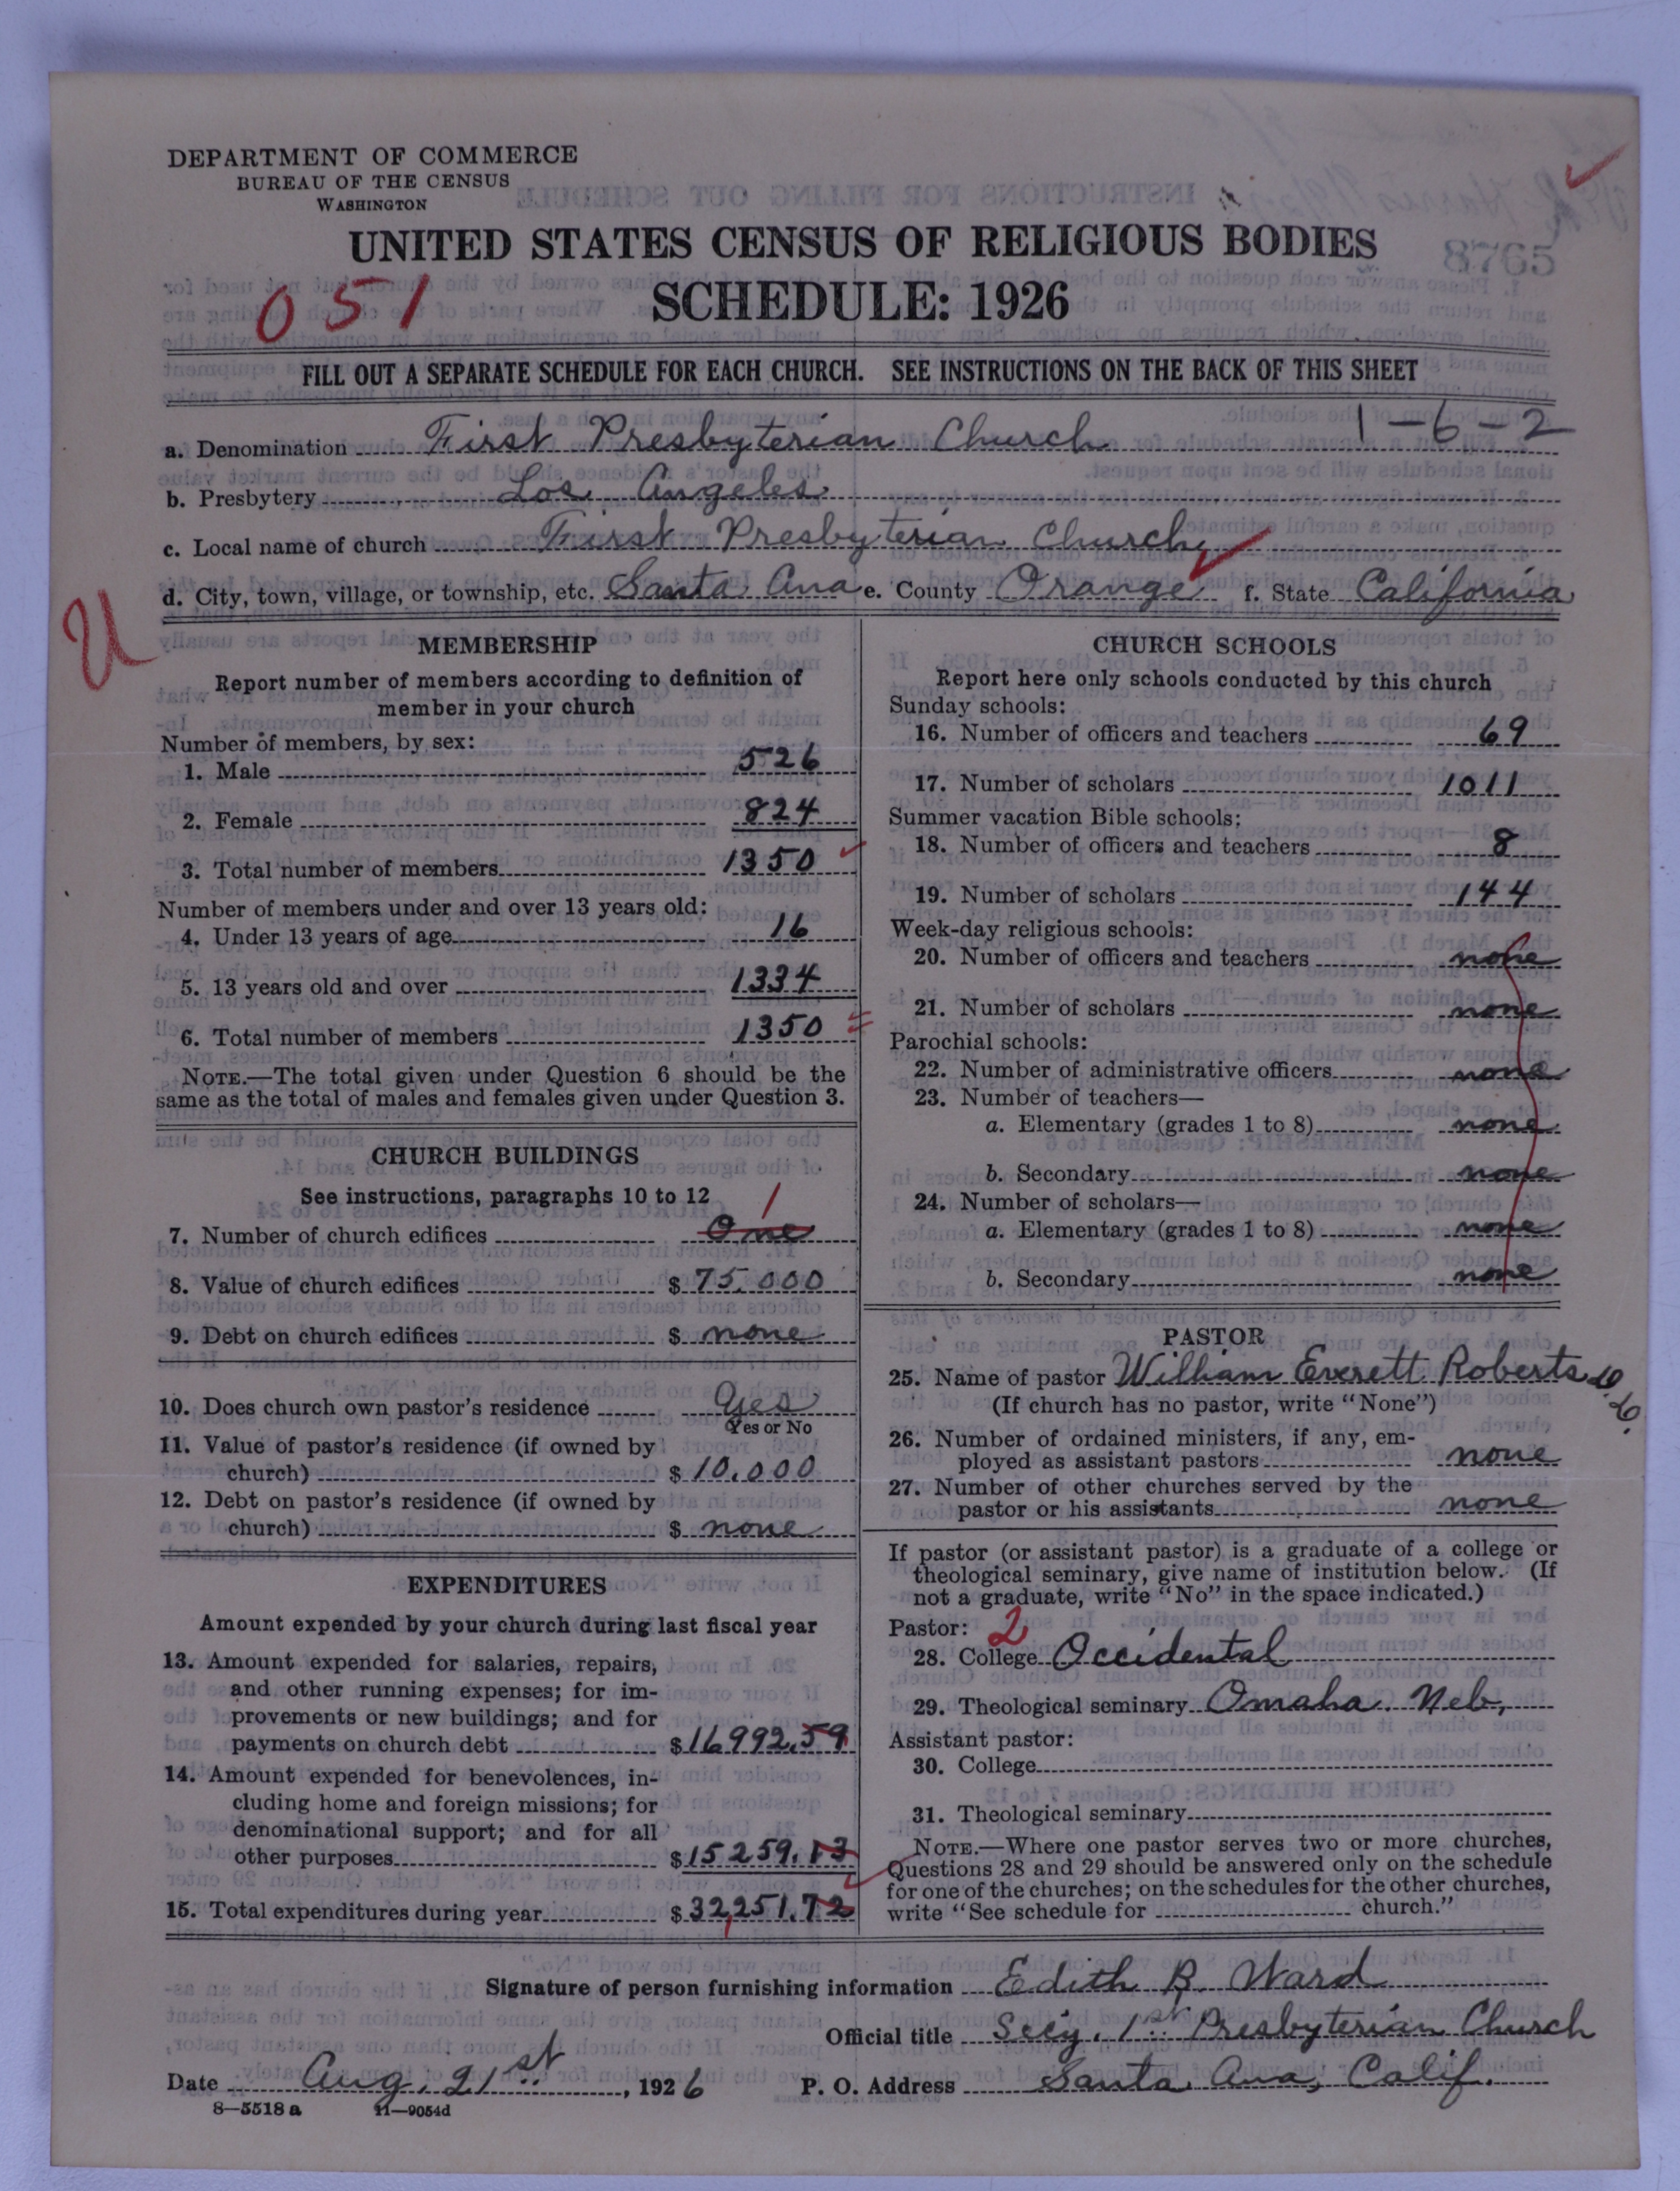 DEPARTMENT OF COMMERCE
BUREAU OF THE CENSUS
WASHINGTON
UNITED STATES CENSUS OF RELIGIOUS BODIES
8765
051
SCHEDULE: 1926
FILL OUT A SEPARATE SCHEDULE FOR EACH CHURCH. SEE INSTRUCTIONS ON THE BACK OF THIS SHEET
1-6-2
a. Denomination First Presbyterian Church
b. Presbytery Los Angeles
c. Local name of church First Presbyterian Church
d. City, town, village, or township, etc. Santa Ana e. County Orange f. State California
U
MEMBERSHIP
Report number of members according to definition of
member in your church
Number of members, by sex:
1. Male 526
2. Female 824
3. Total number of members 1350
Number of members under and over 13 years old:
4. Under 13 years of age 16
5. 13 years old and over 1334
6. Total number of members 1350
NOTE.—The total given under Question 6 should be the
same as the total of males and females given under Question 3.
CHURCH BUILDINGS
See instructions, paragraphs 10 to 12
1
7. Number of church edifices One
8. Value of church edifices $ 75,000
9. Debt on church edifices $ none
10. Does church own pastor's residence Yes
Yes or No
11. Value of pastor's residence (if owned by
church) $ 10,000
12. Debt on pastor's residence (if owned by
church) $ none
EXPENDITURES
Amount expended by your church during last fiscal year
13. Amount expended for salaries, repairs,
and other running expenses; for im-
provements or new buildings; and for
payments on church debt $ 16992.59
14. Amount expended for benevolences, in-
cluding home and foreign missions; for
denominational support; and for all
other purposes $ 15259.13
15. Total expenditures during year $ 32,251.72
CHURCH SCHOOLS
Report here only schools conducted by this church
Sunday schools:
16. Number of officers and teachers 69
17. Number of scholars 1011
Summer vacation Bible schools:
18. Number of officers and teachers 8
19. Number of scholars 144
Week-day religious schools:
20. Number of officers and teachers none
21. Number of scholars none
Parochial schools:
22. Number of administrative officers none
23. Number of teachers—
a. Elementary (grades 1 to 8) none
b. Secondary none
24. Number of scholars—
a. Elementary (grades 1 to 8) none
b. Secondary none
PASTOR
25. Name of pastor William Everett Roberts D.D.
(If church has no pastor, write "None")
26. Number of ordained ministers, if any, em-
ployed as assistant pastors none
27. Number of other churches served by the
pastor or his assistants none
If pastor (or assistant pastor) is a graduate of a college or
theological seminary, give name of institution below. (If
not a graduate, write "No" in the space indicated.)
Pastor: 2
28. College Occidental
29. Theological seminary Omaha, Neb,
Assistant pastor:
30. College
31. Theological seminary
NOTE.—Where one pastor serves two or more churches,
Questions 28 and 29 should be answered only on the schedule
for one of the churches; on the schedules for the other churches,
write "See schedule for church."
Signature of person furnishing information Edith B. Ward
Official title Secy. 1st Presbyterian Church
Date Aug. 21st, 1926 P. O. Address Santa Ana, Calif.
8—5518 a 11—9054d